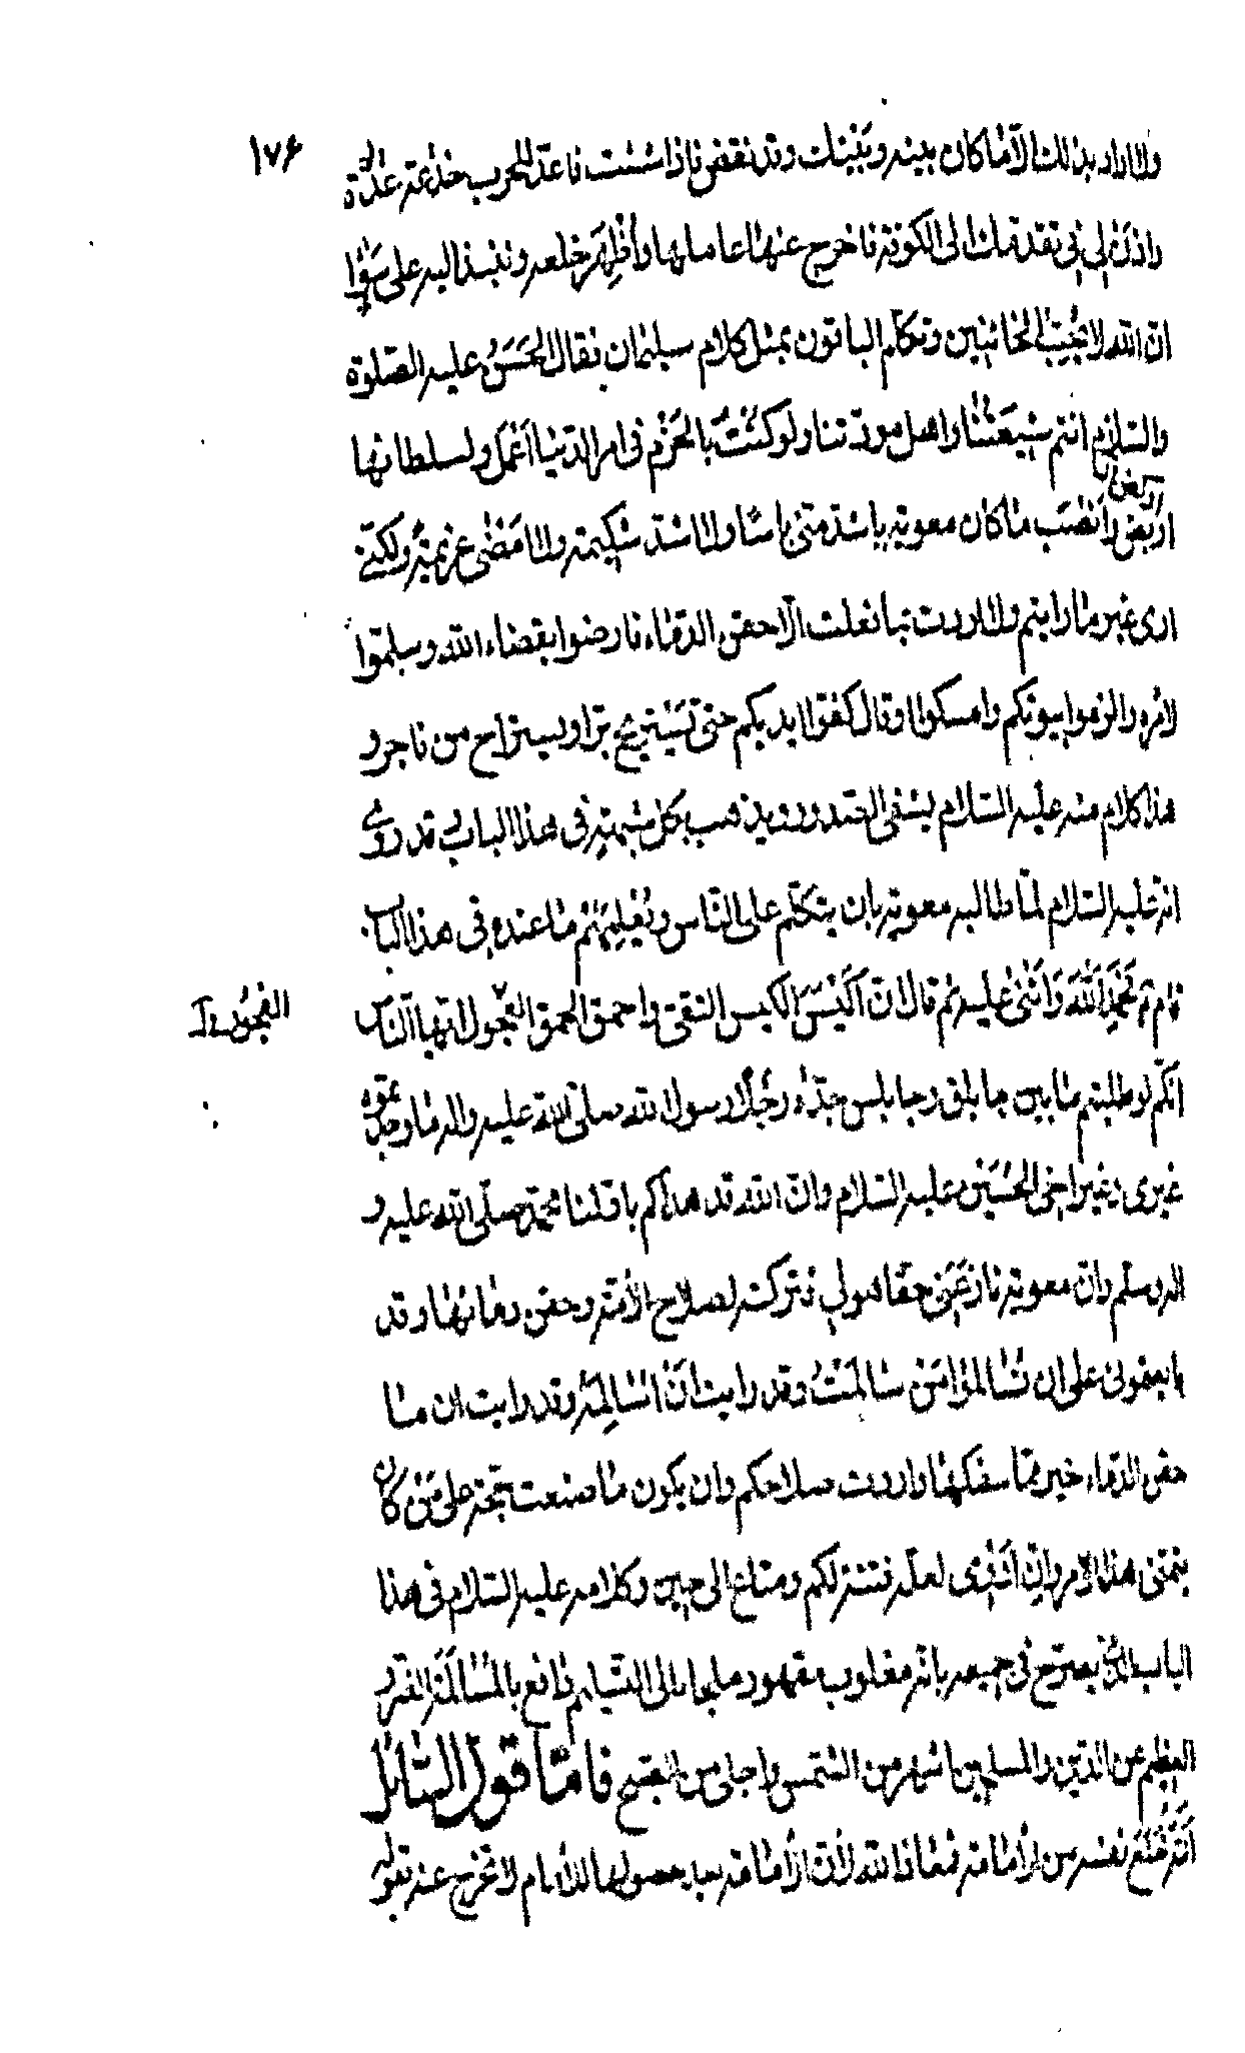 ١٧۶
ولا اراد بذلك الا ما كان بينه وبينك وقد نقض فاذا شئت فاعد للحرب خدعة عدّة
واذن لي في تقدمك الى الكوفة فاخرج عنها عاملها واظهر خلعه وننبذ اليه على سواء
ان الله لا يحب الخائنين وتكلم الباقون بمثل كلام سليمان فقال الحسن عليه الصلوة
والسلام انتم شيعتنا واهل مودتنا ولو كنت بالحزم في امر الدنيا اعمل ولسلطانها
اربض وانصب ما كان معوية باشد منى باسا ولا اشد شكيمة ولا امضى عزيمة ولكنى
ارى غير ما رايتم ولا اردت بما فعلت الا حقن الدماء فارضوا بقضاء الله وسلموا
لامره والزموا بيوتكم وامسكوا او قال كفوا ايديكم حتى يستريح بر او يستراح من فاجر و
هذا كلام منه عليه السلام يشفى الصدور ويذهب بكل شبهة في هذا الباب قد روى
انه عليه السلام لما طالبه معوية بان يتكلم على الناس ويعلمهم ما عنده في هذا الباب
قام فحمد الله واثنى عليه ثم قال ان اكيس الكيس التقى واحمق الحمق الفجور ايها الناس
الفجور
انكم لو طلبتم ما بين جابلق وجابلس جده رجلا رسول الله صلى الله عليه واله ما وجدتموه
غيرى وغير اخى الحسين عليه السلام وان الله قد هداكم باولنا محمد صلى الله عليه و
اله وسلم وان معوية نازعنى حقا هو لي فتركته لصلاح الامة وحقن دمائها وقد
بايعتمونى على ان تسالموا من سالمت وقد رايت ان اسالمه وقد رايت ان ما
حقن الدماء خير مما سفكها واردت صلاحكم وان يكون ما صنعت حجة على من كان
يتمنى هذا الامر وان ادرى لعله فتنة لكم ومتاع الى حين وكلامه عليه السلام في هذا
الباب الذى يصرح في جميعه بانه مغلوب مقهور ملجاء الى التسليم دافع بالمسالمة الضرر
العظيم عن الدين والمسلمين اشهر من الشمس واجلى من الصبح فاما قول السائل
انه خلع نفسه من الامامة فمعاذ الله لان الامامة بعد حصولها للامام لا تخرج عنه بقوله